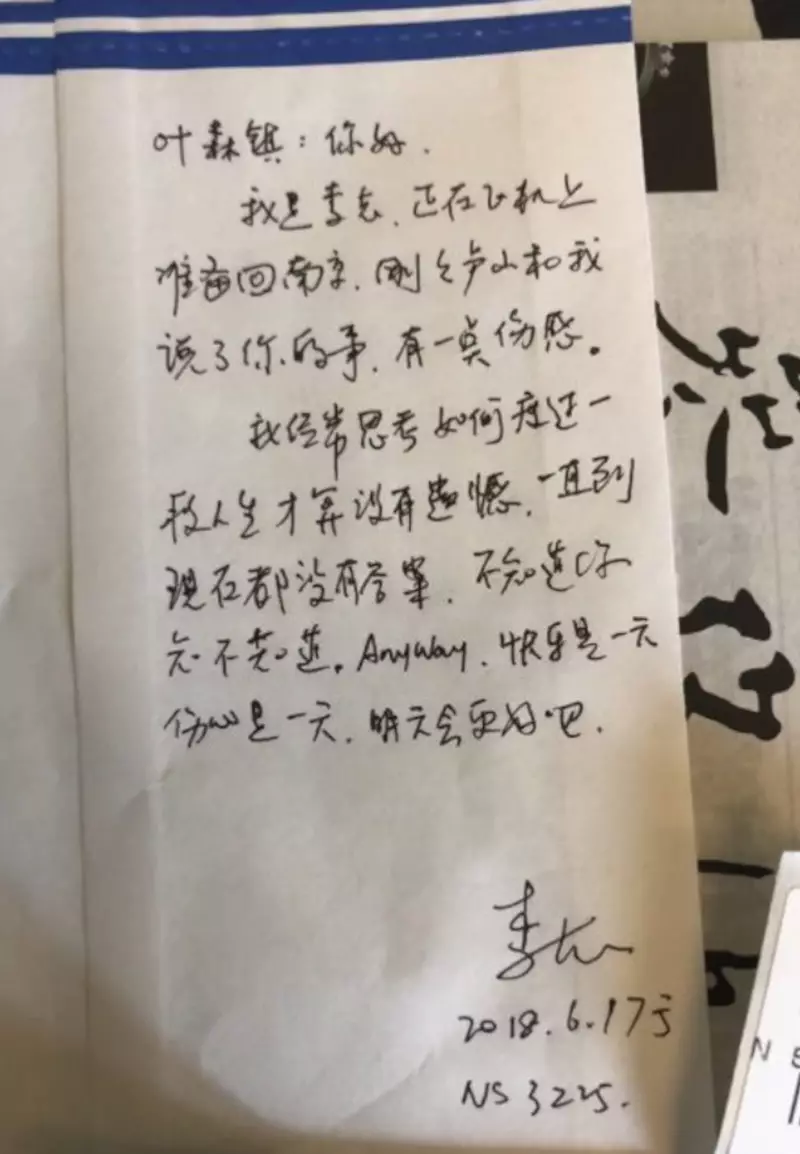 叶森镇：你好.
我是李志,正在飞机上
准备回南京,刚乞庐山和我
说了你的事,有一点伤感。
我经常思考如何度过一
段人生才算没有遗憾,一直到
现在都没有答案,不知道你
知不知道。Anyway,快乐是一天
伤心是一天,明天会更好吧.
李志
2018.6.17号
NS3225.